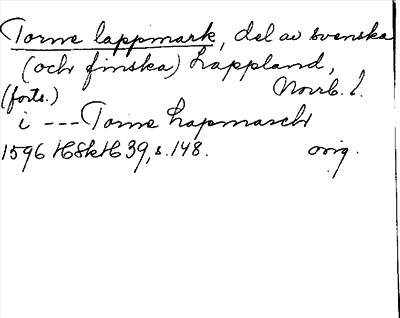 Torne lappmark, del av svenska
(och finska) Lappland,
(forts.) Norrb. l.
i --- Torne Lapmarch
1596 HSkH 39, s. 148. orig.